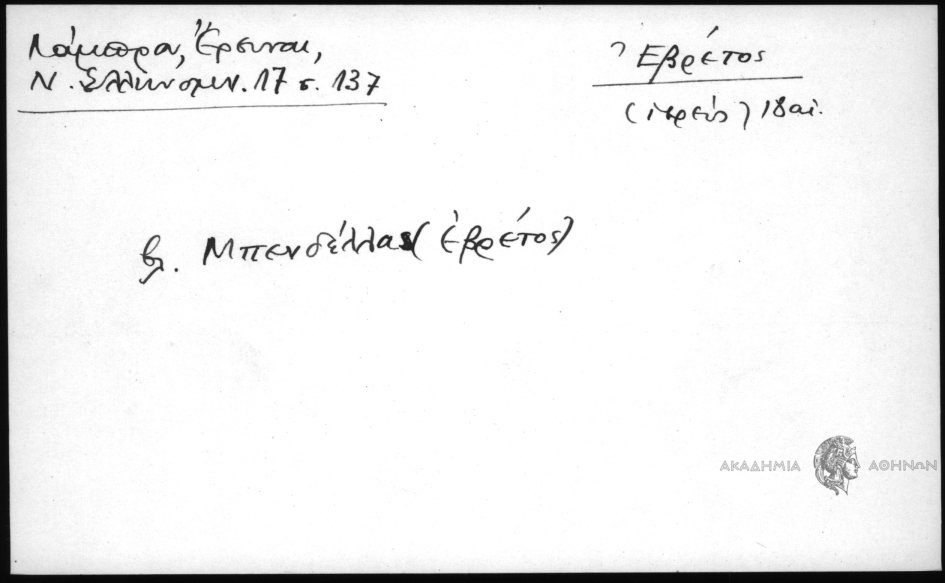 Λάμπρου, Ἔρευναι,
Ν. Ἑλληνομν. 17 σ. 137
Ἐβρέτος
(ἱερεύς) 18 αἰ.
βλ. Μπενδέλλας (ἐβρέτος)
ΑΚΑΔΗΜΙΑ ΑΘΗΝΩΝ